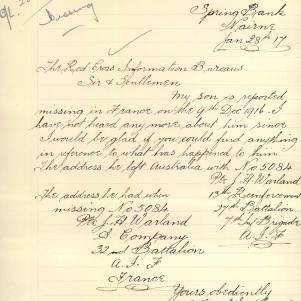 Missing
Spring Bank
Nairne
Jan 28th 17
The Red Cross Information Bureaus
Sir & Gentlemen
My son is reported
missing in France on the 9th Dec 1916. I
have not heard any more about him since
I would be glad if you could find anything
in reference to what has happened to him.
The address he left Australia with No 5084
Pte J. H Warland
13th Reinforcement
27th Battalion
7th Inf Brigade
A. I. F
The address he had when
missing No 5084
Pte J. H Warland
A Company
32nd Battalion
A. I. F
France
Yours obediently